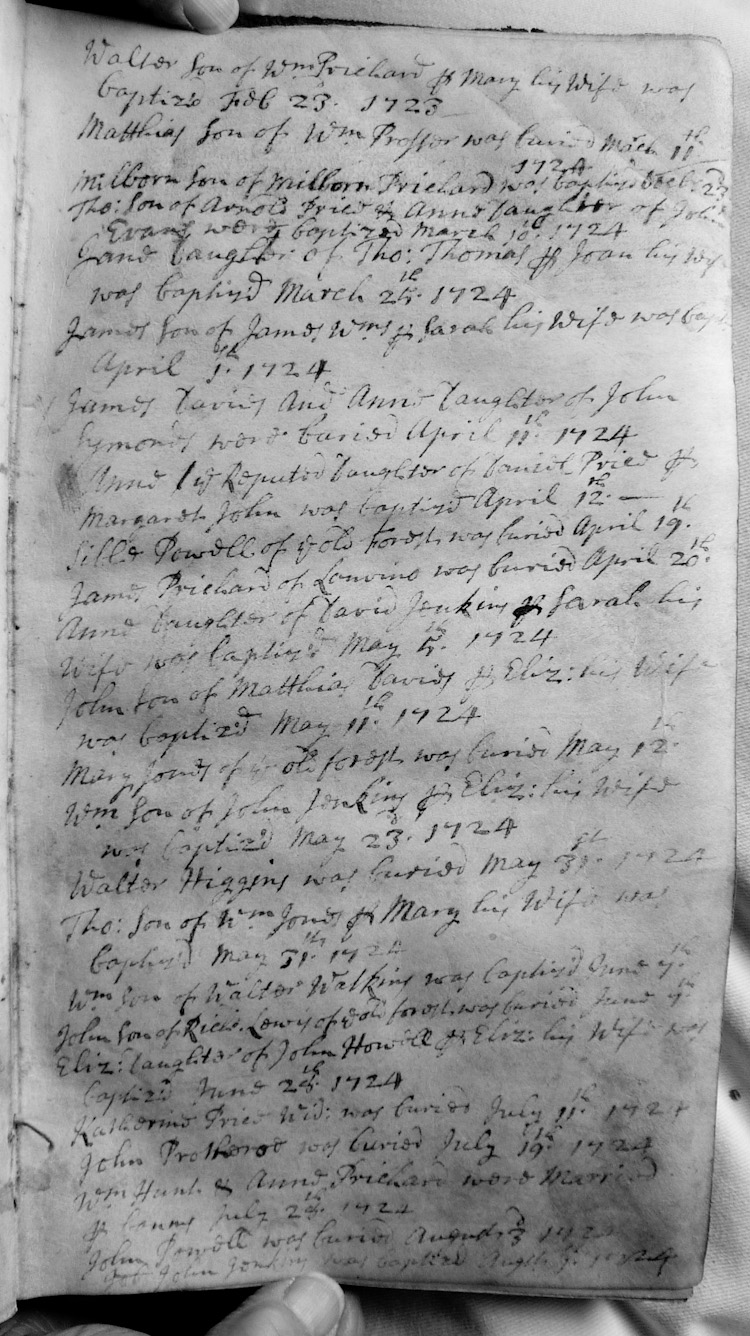 Walter Son of Wm Prichard & Mary his Wife was
baptiz'd Feb 23d. 1723
Matthias Son of Wm Prosser was buried March 11th
1724
Milborn Son of Milborn Prichard was baptiz'd
Tho: Son of Arnold Price & Anne Daughter of John
Evans were baptized March 10th. 1724
Jane Daughter of Tho: Thomas & Joan his Wife
was baptiz'd March 24th. 1724
James Son of James Wms & Sarah his Wife was bapt
April 5th. 1724
James Davies And Anne Daughter of John
Symonds were buried April 11th. 1724
Anne ye Reputed Daughter of Daniel Price &
Margaret John was baptiz'd April 12th. —
Sille Powell of ye old forest was buried April 19th.
James Prichard of Lanvino was buried April 20th.
Anne Daughter of David Jenkins & Sarah his
Wife was baptiz'd May 4th. 1724
John Son of Matthias Davies & Eliz: his Wife
was baptiz'd May 11th. 1724
Mary Jones of ye old forest was buried May 12th.
Wm Son of John Jenkins & Eliz: his Wife
was baptiz'd May 23d. 1724
Walter Higgins was buried May 31st. 1724
Tho: Son of Wm Jones & Mary his Wife was
baptiz'd May 31th. 1724
Wm Son of Walter Watkins was baptiz'd June 7th.
John Son of Richd. Lewis of ye old forest was buried June 9th.
Eliz: Daughter of John Howell & Eliz: his Wife was
baptiz'd June 24th. 1724
Katherine Price Wid: was buried July 11th. 1724
John Protheroe was buried July 19th. 1724
Wm Hunt & Anne Prichard were Married
& banns July 24th. 1724
John Powell was buried August 3d 1724
John Jenkins was baptiz'd Augst 1724